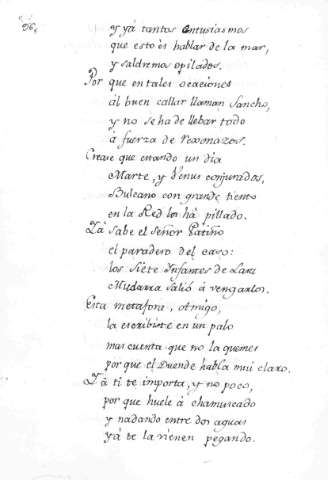 26,
y yá tantos entusiasmos
que esto és hablar de la mar,
y saldremos opilados.
Por que en tales ocaciones
ál buen callar llaman Sancho,
y no se ha de llebar todo
á fuerza de rexonazos.
Crease que estando un dia
Marte, y Venus conjurados,
Bulcano con grande tiento
en la Red los há pillado.
Yá sabe el Señor Patiño
el paradero del caso:
los Siete Infantes de Lara
Mudarra salió á vengarlos.
Esta metafora, Amigo,
la escribiste en un palo
mas cuenta que no la quemes
por que el Duende habla mui claro.
Yá ti te importa, y no poco,
por que huele á chamuscado
y nadando entre dos aguas
yá te la vienen pegando.